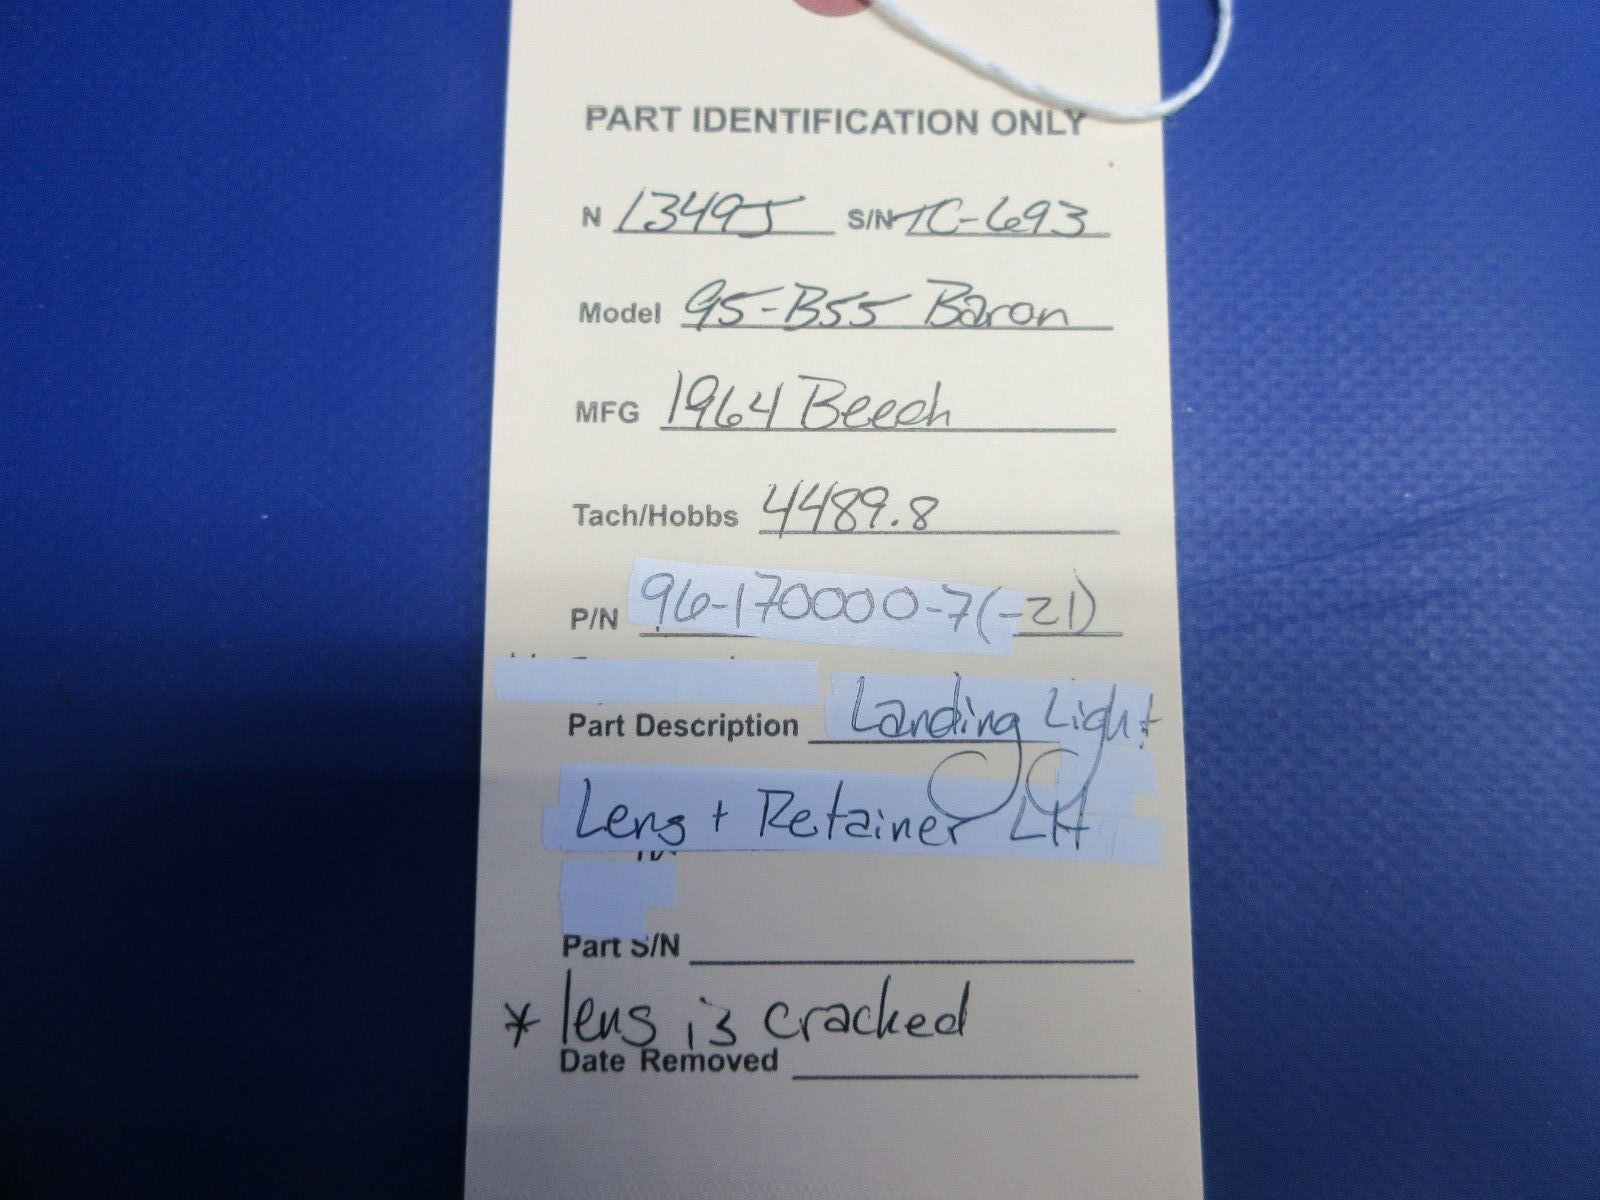 PART IDENTIFICATION ONLY
N 13495 S/N TC-693
Model 95-B55 Baron
MFG 1964 Beech
Tach/Hobbs 4489.8
P/N 96-170000-7(-21)
Part Description Landing Light
Lens + Retainer LH
Part S/N
* lens is cracked
Date Removed